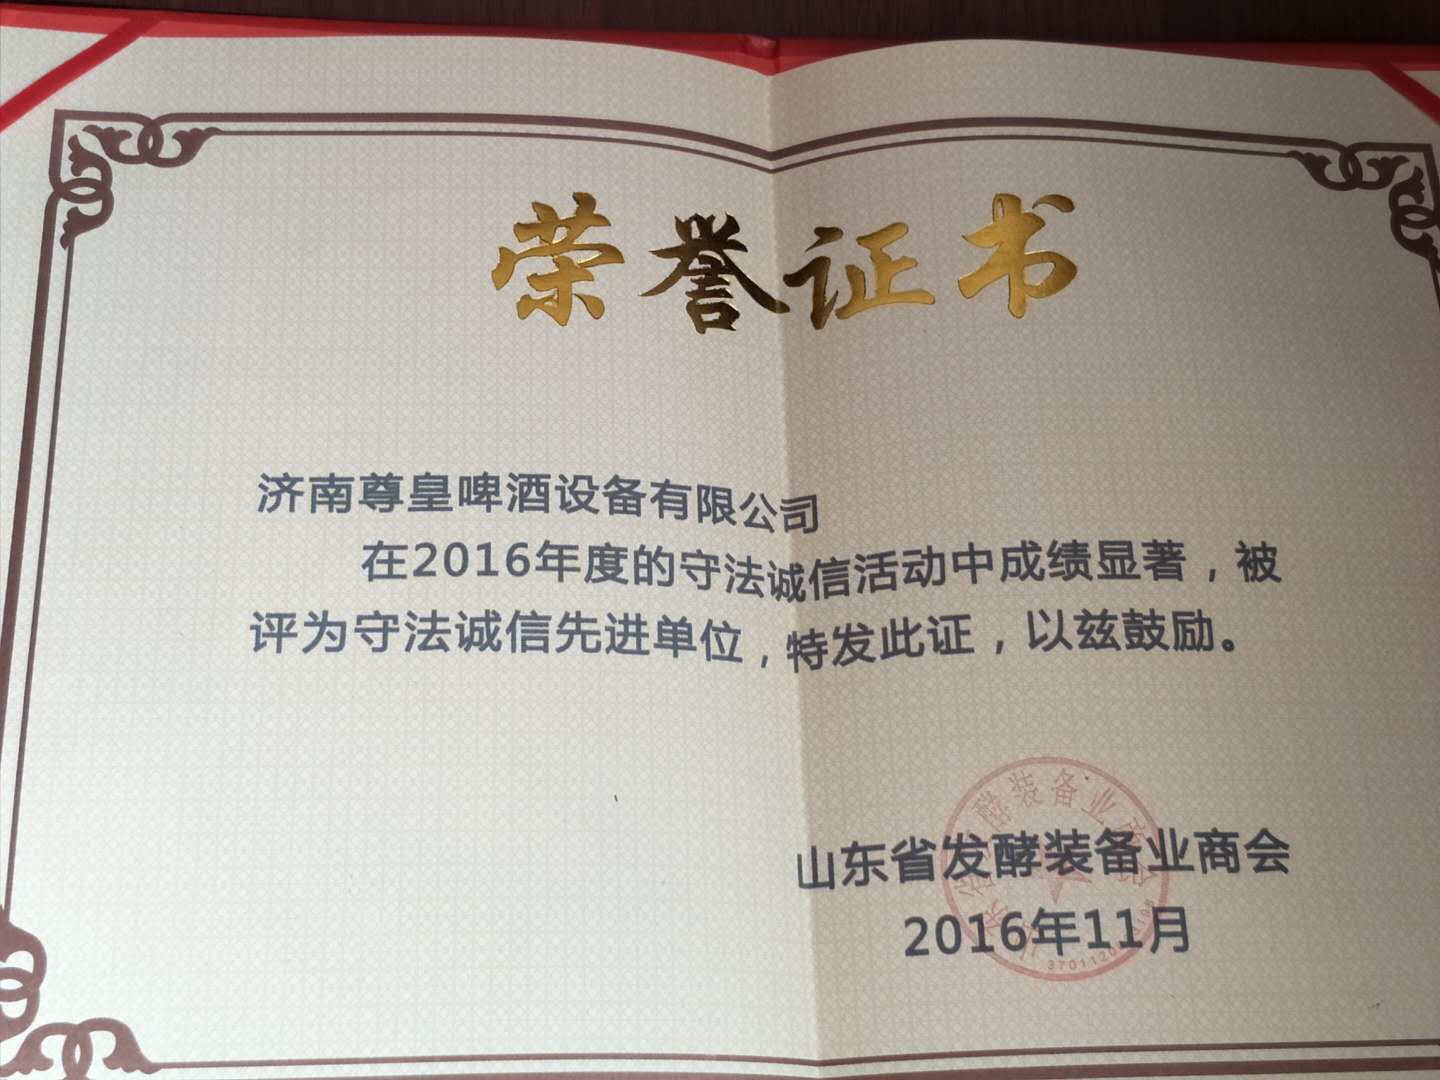 荣誉证书
济南尊皇啤酒设备有限公司
在2016年度的守法诚信活动中成绩显著，被
评为守法诚信先进单位，特发此证，以兹鼓励。
山东省发酵装备业商会
2016年11月